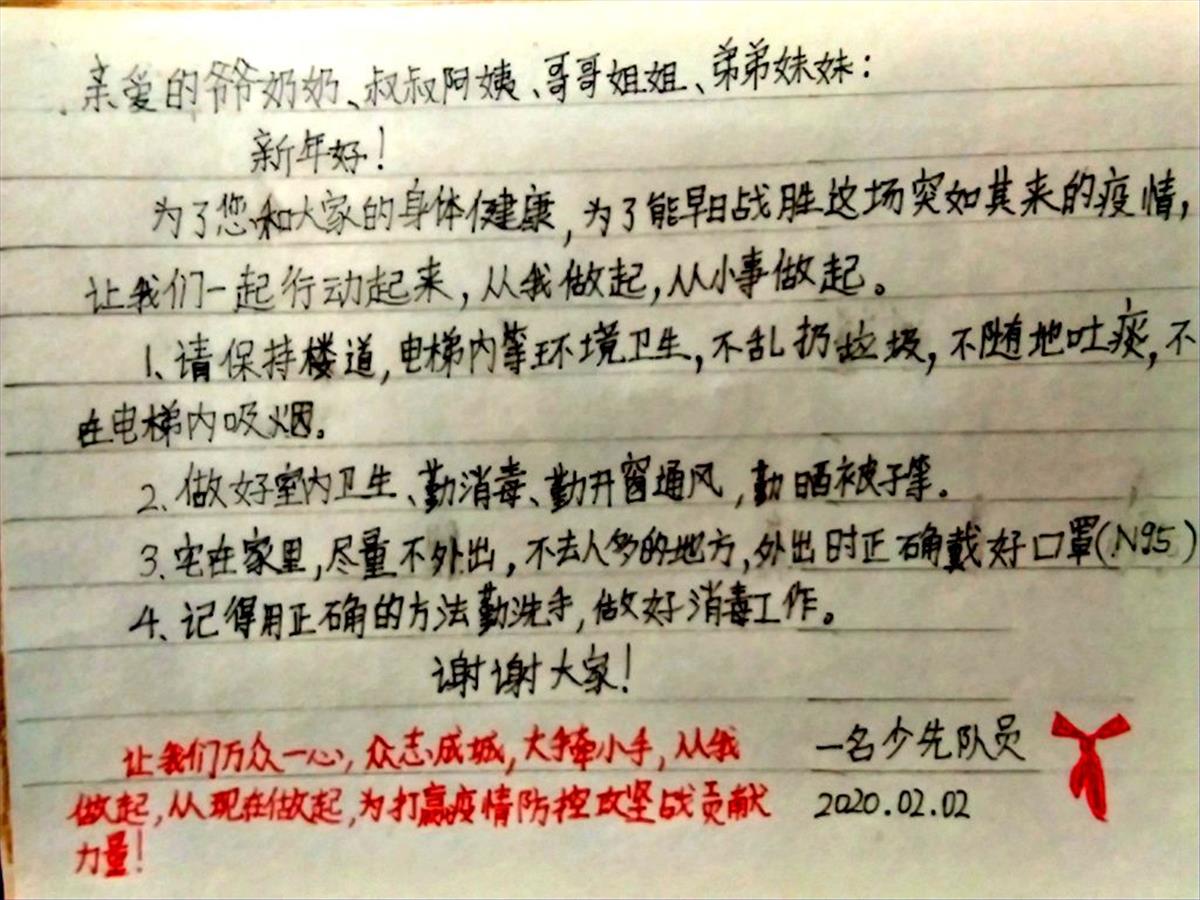 亲爱的爷爷奶奶、叔叔阿姨、哥哥姐姐、弟弟妹妹：
新年好！
为了您和大家的身体健康，为了能早日战胜这场突如其来的疫情，
让我们一起行动起来，从我做起，从小事做起。
1、请保持楼道，电梯内等环境卫生，不乱扔垃圾，不随地吐痰，不
在电梯内吸烟。
2、做好室内卫生、勤消毒、勤开窗通风，勤晒被子等。
3、宅在家里，尽量不外出，不去人多的地方，外出时正确戴好口罩(N95)
4、记得用正确的方法勤洗手，做好消毒工作。
谢谢大家！
让我们万众一心，众志成城，大手牵小手，从我
做起，从现在做起，为打赢疫情防控攻坚战贡献
力量！
一名少先队员
2020.02.02